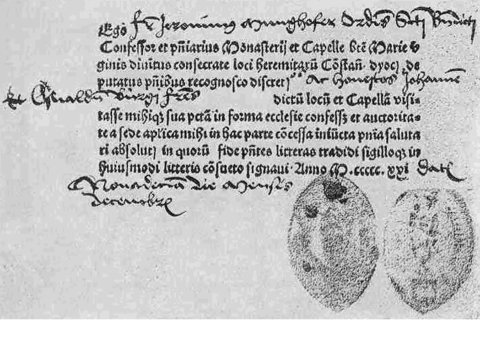 Ego Fr Jeronimus Munghofer Ordīs Scti Bndicti
Confessor et pn̄iarius Monasterij et Capelle bte̅ Marie v
ginis diuinitus consecrate loci heremitarū Cōstan̄ dyoc̄ de
putatus pn̄tibus recognosco discret Ac honestos Johannē
Et Oswaldū fres dictū locū et Capellā visi
tasse mihiqꝫ sua pctā in forma ecclesie confess et auctorita
te a sede aplica mihi in hac parte cōcessa iniūcta pn̄ia saluta
ri absoluti in quorū fide pn̄tes litteras tradidi sigilloqꝫ in
huiusmodi litteris cōsueto signaui Anno M.ccccc.xxi dat
die Mensis
decembr